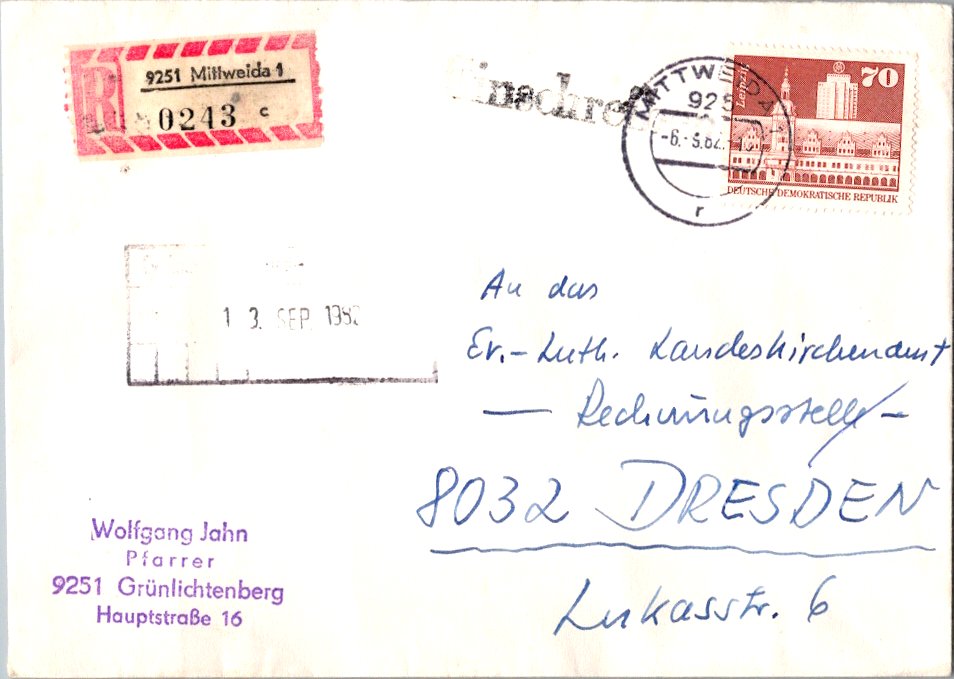 R
9251 Mittweida 1
0243 c
Einschrei
MITTWEIDA 1
925
-6.-9.82.-10
r
Leipzig
70
DEUTSCHE DEMOKRATISCHE REPUBLIK
13. SEP. 1982
An das
Ev.-Luth. Landeskirchenamt
— Rechnungsstelle —
8032 DRESDEN
Lukasstr. 6
Wolfgang Jahn
Pfarrer
9251 Grünlichtenberg
Hauptstraße 16